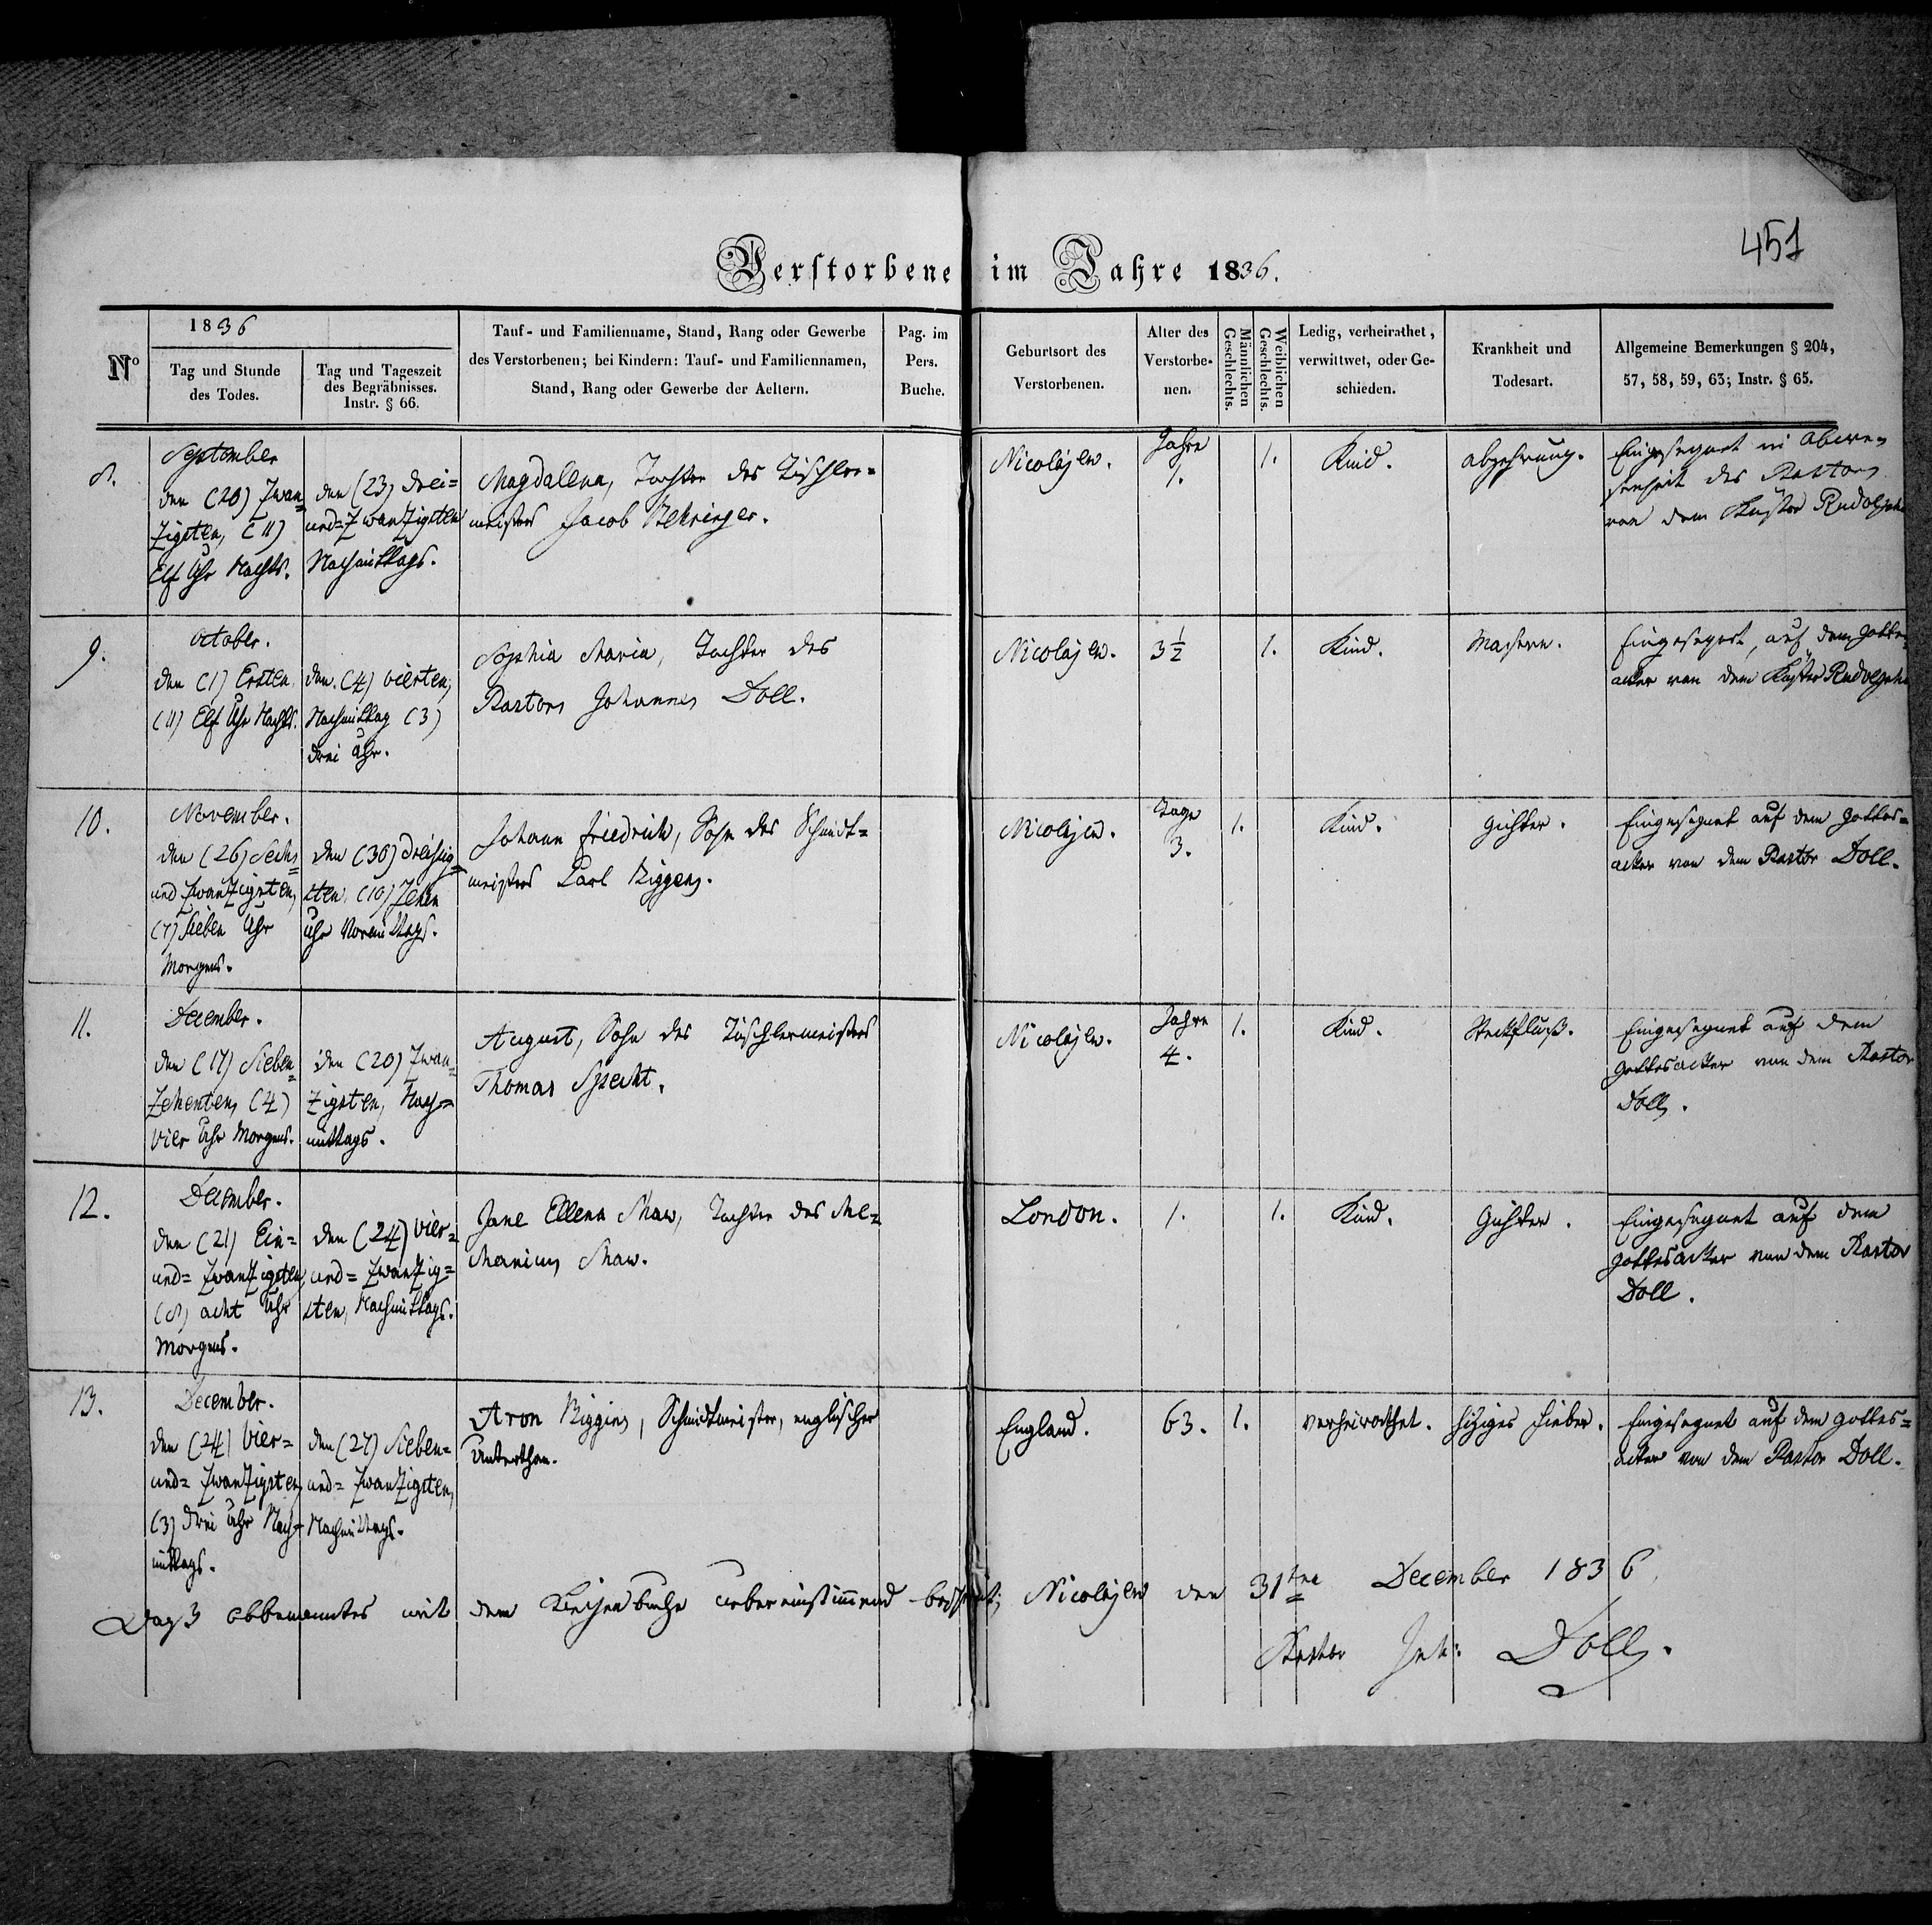 451
Verstorbene im Jahre 1836.
No
1836
Tag und Stunde
des Todes.
Tag und Tageszeit
des Begräbnisses.
Instr. § 66.
Tauf- und Familienname, Stand, Rang oder Gewerbe
des Verstorbenen; bei Kindern: Tauf- und Familiennamen,
Stand, Rang oder Gewerbe der Aeltern.
Pag. im
Pers.
Buche.
Geburtsort des
Verstorbenen.
Alter des
Verstorbe-
nen.
Männlichen
Geschlechts.
Weiblichen
Geschlechts.
Ledig, verheirathet,
verwittwet, oder Ge-
schieden.
Krankheit und
Todesart.
Allgemeine Bemerkungen § 204,
57, 58, 59, 63; Instr. § 65.
8.
September
den (20) Zwan=
zigsten, (11)
Elf Uhr Nachts.
den (23) drei=
und=zwanzigsten
Nachmittags.
Magdalena, Tochter des Tischler=
meisters Jacob Behringer.
Nicolajew.
Jahre
1.
1.
Kind.
Abzehrung.
Eingesegnet in Abwe=
senheit des Pastors
von dem Küster Rudolph
9.
October.
den (1) Ersten,
(11) Elf Uhr Nachts.
den (4) vierten,
Nachmittag (3)
drei Uhr.
Sophia Maria, Tochter des
Pastors Johannes Doll.
Nicolajew.
3 1/2
1.
Kind.
Masern.
Eingesegnet, auf dem Gottes=
acker von dem Küster Rudolph
10.
November.
den (26) Sechs
und zwanzigsten,
(7) Sieben Uhr
Morgens.
den (30) dreißig=
sten, (10) Zehen
Uhr Vormittags.
Johann Friedrich, Sohn des Schmidt=
meisters Carl Biggens.
Nicolajew.
Tage
3.
1.
Kind.
Gichter.
Eingesegnet auf dem Gottes=
acker von dem Pastor Doll.
11.
December.
den (17) Sieben=
zehenten, (4)
vier Uhr Morgens.
den (20) Zwan=
zigsten, Nach=
mittags.
August, Sohn des Tischlermeisters
Thomas Specht.
Nicolajew.
Jahre
4.
1.
Kind.
Steckfluß.
Eingesegnet auf dem
Gottesacker von dem Pastor
Doll.
12.
December.
den (21) Ein=
und=zwanzigsten,
(8) acht Uhr
Morgens.
den (24) vier=
und=zwanzig=
sten, Nachmittags.
Jane Ellena Shaw, Tochter des Me=
chanicus Shaw.
London.
1.
1.
Kind.
Gichter.
Eingesegnet auf dem
Gottesacker von dem Pastor
Doll.
13.
December.
den (24) vier=
und=zwanzigsten,
(3) drei Uhr Nach=
mittags.
den (27) Sieben=
und=zwanzigsten,
Nachmittags.
Aron Biggins, Schmidtmeister, englischer
Unterthan.
England.
63.
1.
verheirathet.
hitziges Fieber.
Eingesegnet auf dem Gottes=
acker von dem Pastor Doll.
Daß obbenanntes mit dem Kirchenbuche uebereinstimmend Nicolajew den 31ten December 1836.
Pastor Joh: Doll.